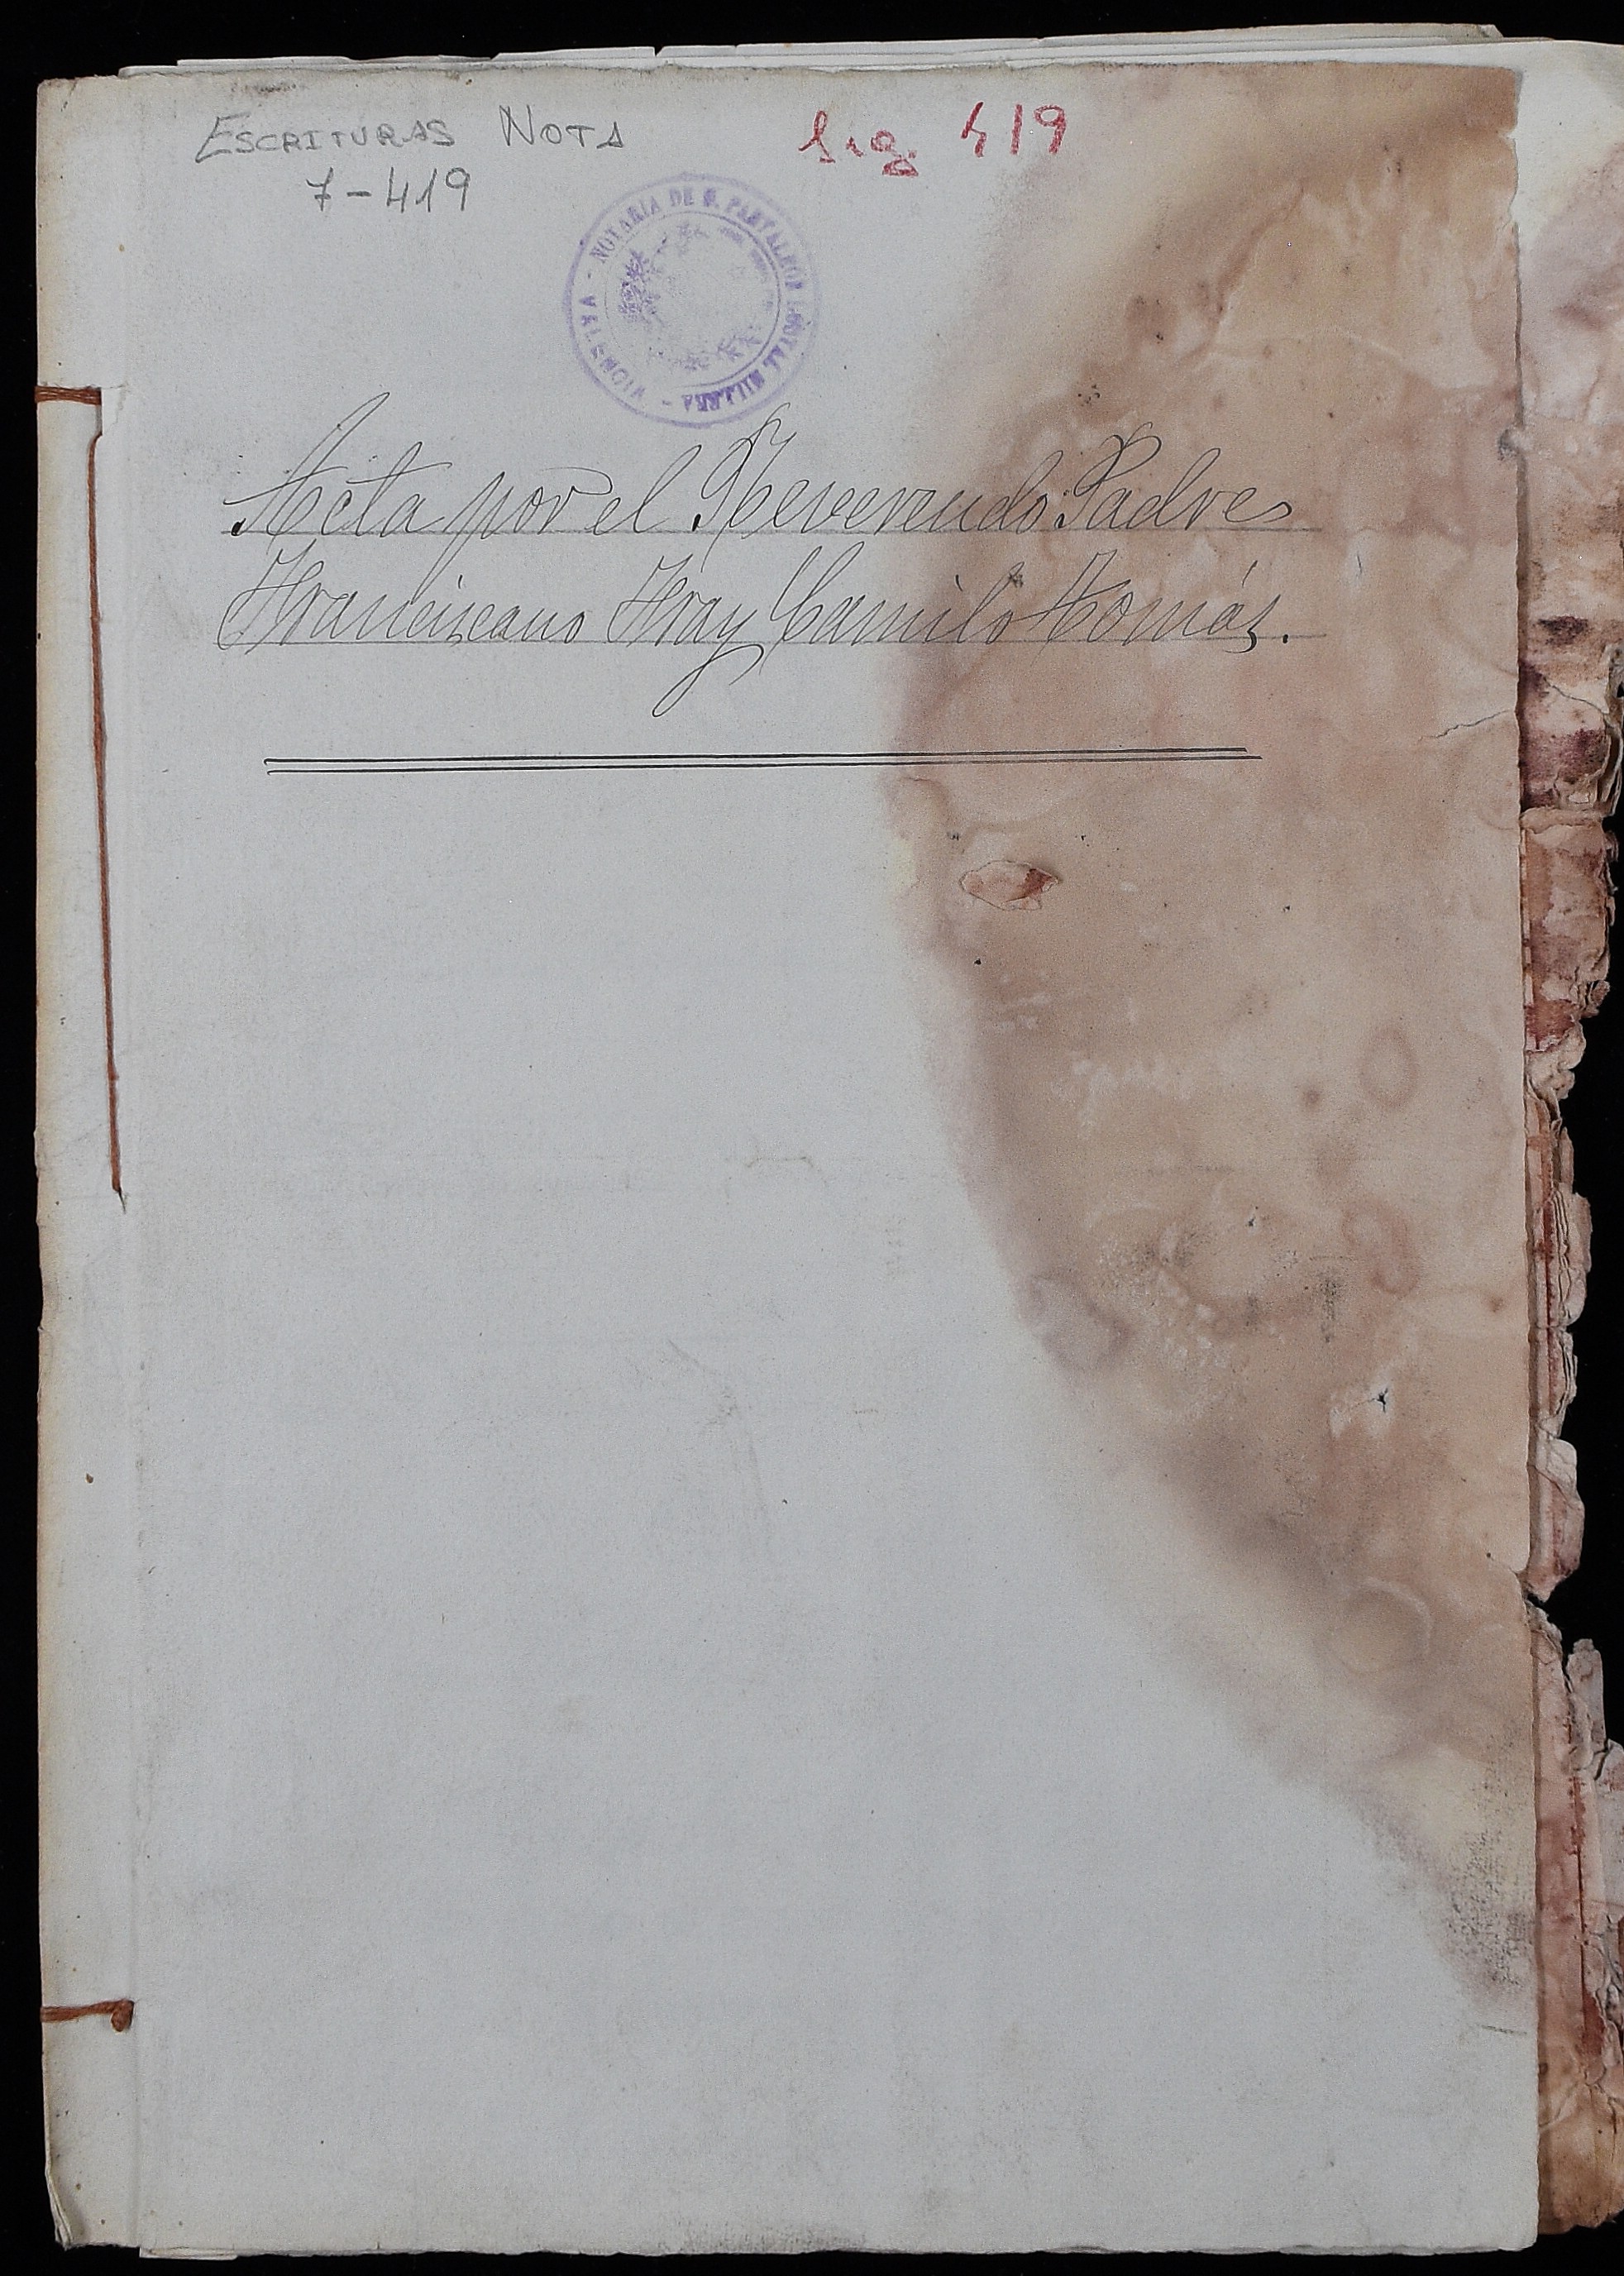 ESCRITURAS NOTA
7-419
Sig. 419
NOTARÍA DE D. PANTALEÓN - VALENCIA -
Acta por el Reverendo Padre
Franciscano Fray Camilo Tomás.